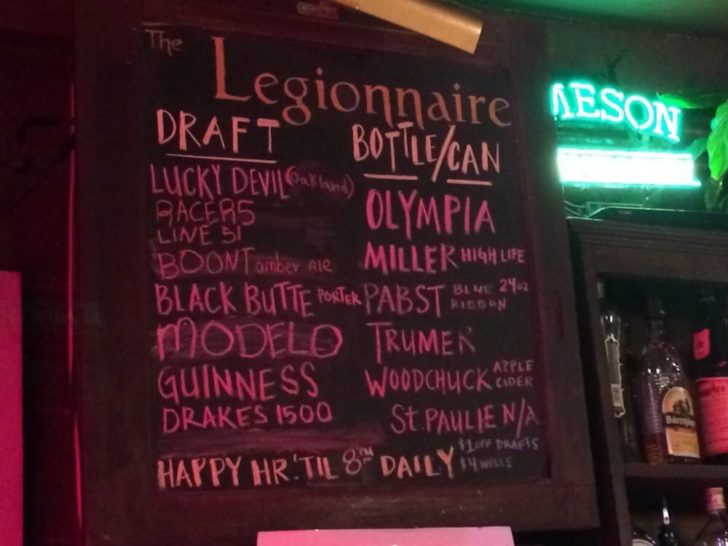 The Legionnaire
DRAFT
LUCKY DEVIL (Oakland)
RACER 5
LINE 51
BOONT amber Ale
BLACK BUTTE PORTER
MODELO
GUINNESS
DRAKES 1500
BOTTLE/CAN
OLYMPIA
MILLER HIGH LIFE
PABST BLUE RIBBON 24oz
TRUMER
WOODCHUCK APPLE CIDER
ST. PAULIE N/A
HAPPY HR. 'TIL 8PM DAILY
$1 OFF DRAFTS
$4 WELLS
MESON